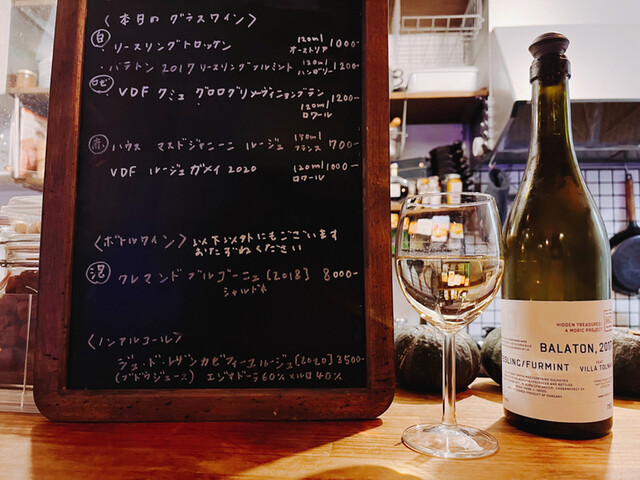 〈本日の グラスワイン〉
白
・リースリングトロッケン 120ml オーストリア 1000-
・バラトン2017リースリングフルミント 120ml ハンガリー 1200-
ロゼ
VDF クミュ グログリ 120ml ロワール 1200-
赤
ハウス マスドジャニーニ ルージュ 150ml フランス 700-
VDF ルージュガメイ 2020 120ml ロワール 1000-
〈ボトルワイン〉以下以外にもございます
おたずねください
泡
クレマンドブルゴーニュ〔2018〕 8000-
シャルドネ
〈ノンアルコール〉
ジュ・ド・レザンカビフィーユルージュ〔2020〕3500-
(ブドウジュース) 60% メルロ40%
HIDDEN TREASURES
A MORIC PROJECT
BALATON, 2017
ESLING/FURMINT
VILLA TOLNA